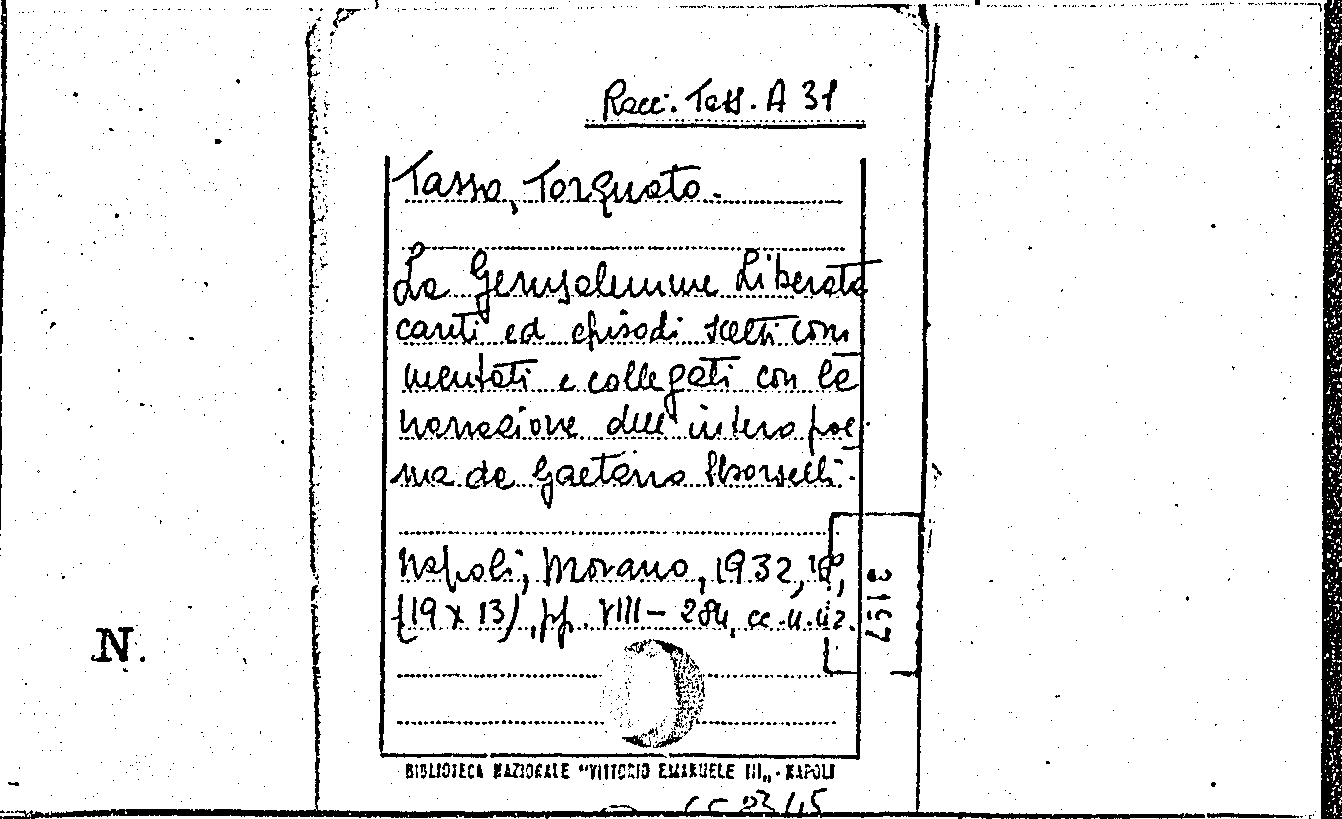 Racc. Tass. A 31
Tasso, Torquato.
La Gerusalemme Liberata
canti ed episodi scelti com
mentati e collegati con la
narrazione dell'intero poe-
ma da Gaetano Sborselli.
Napoli, Morano, 1932, 16°,
(19 x 13), pp. VIII - 284, cc. n. nz.
3157
N.
BIBLIOTECA NAZIONALE "VITTORIO EMANUELE III„ - NAPOLI